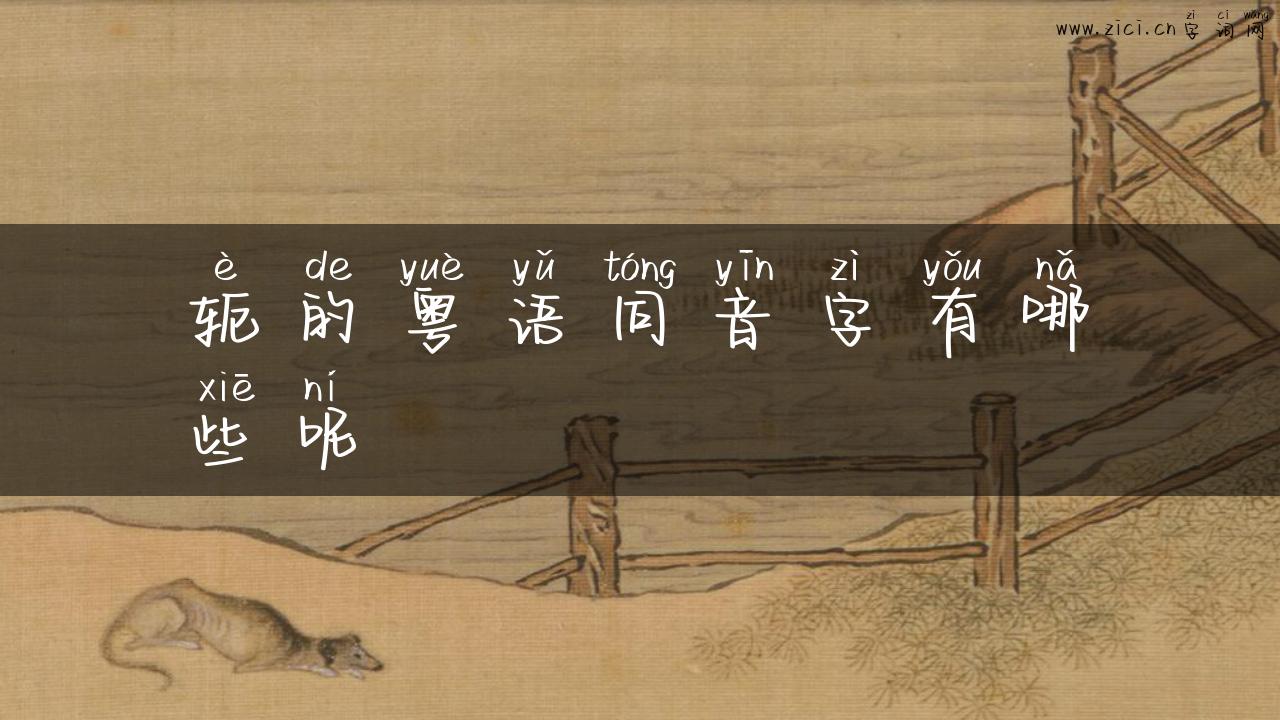 zì cí wǎng
www.zici.cn 字词网
è de yuè yǔ tóng yīn zì yǒu nǎ
轭的粤语同音字有哪
xiē ní
些呢